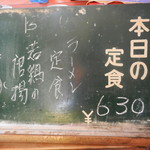 本日の
定食
¥630
ラーメン
定食
B 若鶏の
唐揚